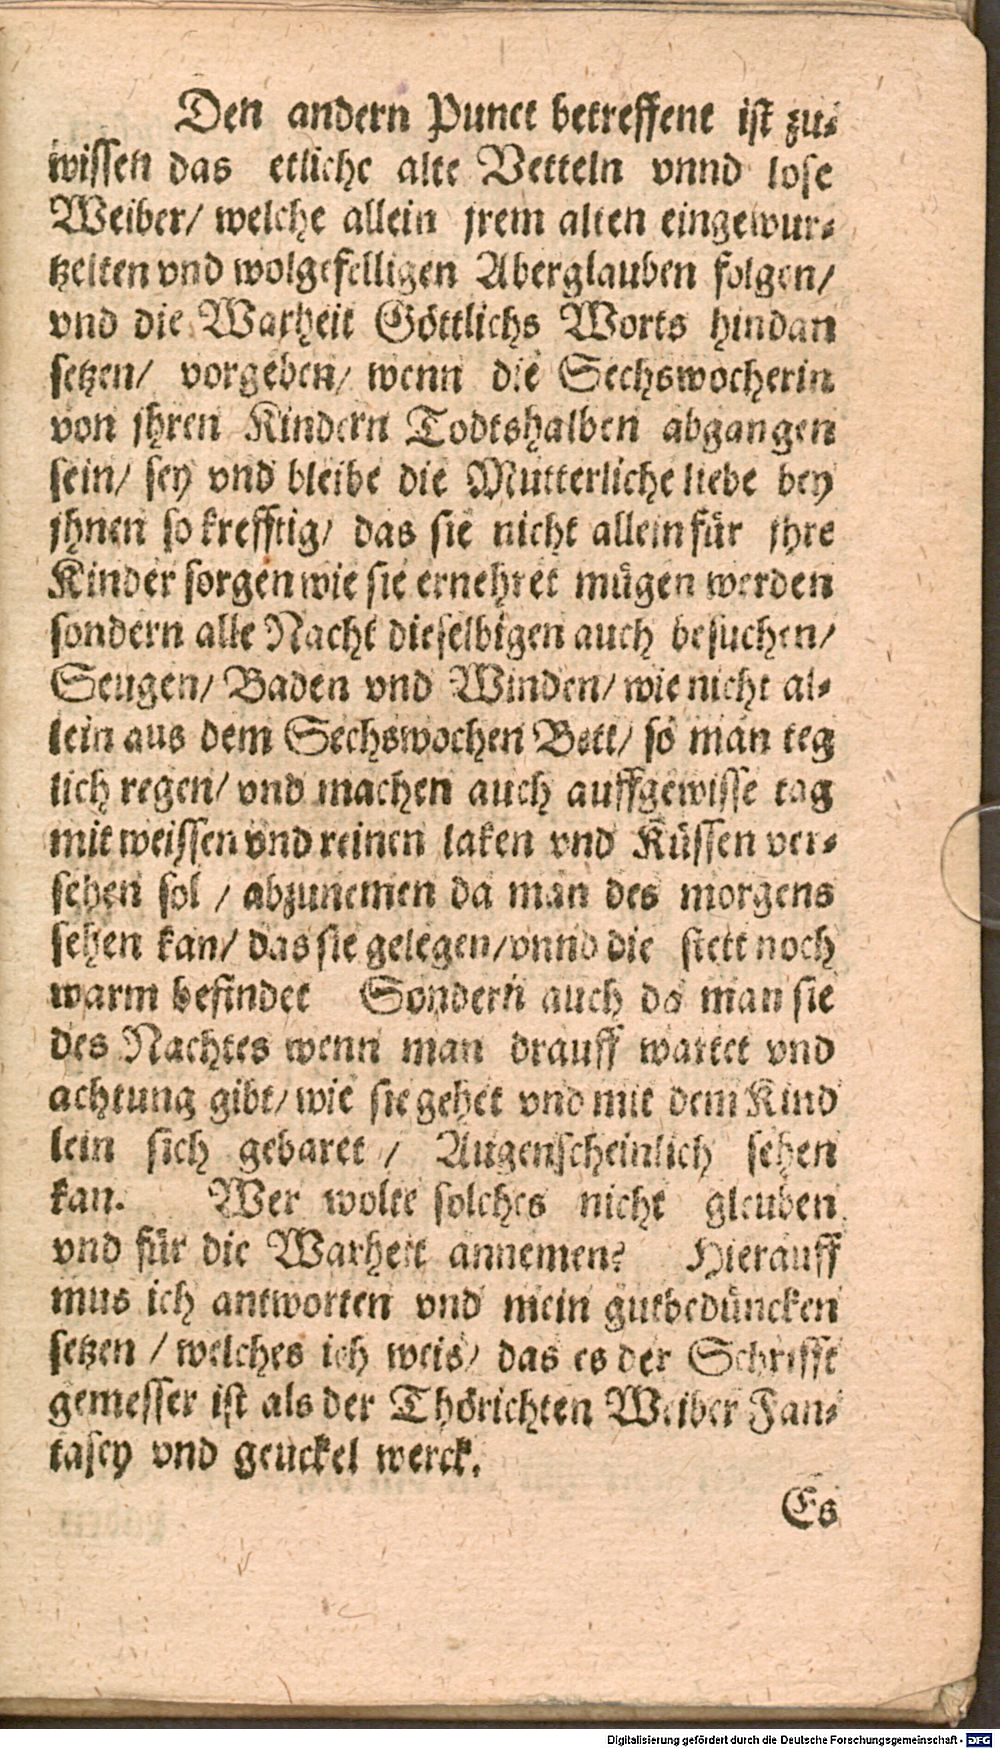 Den andern Punct betreffent ist zu-
wissen das etliche alte Vetteln vnnd lose
Weiber/ welche allein jrem alten eingewur-
tzelten vnd wolgefelligen Aberglauben folgen/
vnd die Warheit Göttlichs Worts hindan
setzen/ vorgeben/ wenn die Sechswocherin
von jhren Kindern Todtshalben abgangen
sein/ sey vnd bleibe die Mütterliche liebe bey
jhnen so krefftig/ das sie nicht allein für jhre
Kinder sorgen wie sie ernehret mügen werden
sondern alle Nacht dieselbigen auch besuchen/
Seugen/ Baden vnd Winden/ wie nicht al-
lein aus dem Sechswochen Bett/ so man teg
lich regen/ vnd machen auch auffgewisse tag
mit weissen vnd reinen laken vnd Küssen ver-
sehen sol / abzunemen da man des morgens
sehen kan/ das sie gelegen/ vnnd die stett noch
warm befindet Sondern auch da man sie
des Nachtes wenn man drauff wartet vnd
achtung gibt/ wie sie gehet vnd mit dem Kind
lein sich gebaret / Augenscheinlich sehen
kan. Wer wolte solches nicht gleuben
vnd für die Warheit annemen? Hierauff
mus ich antworten vnd mein gutbedüncken
setzen / welches ich weis/ das es der Schrifft
gemesser ist als der Thörichten Weiber Fan-
tasey vnd geuckel werck.
Es
Digitalisierung gefördert durch die Deutsche Forschungsgemeinschaft - DFG